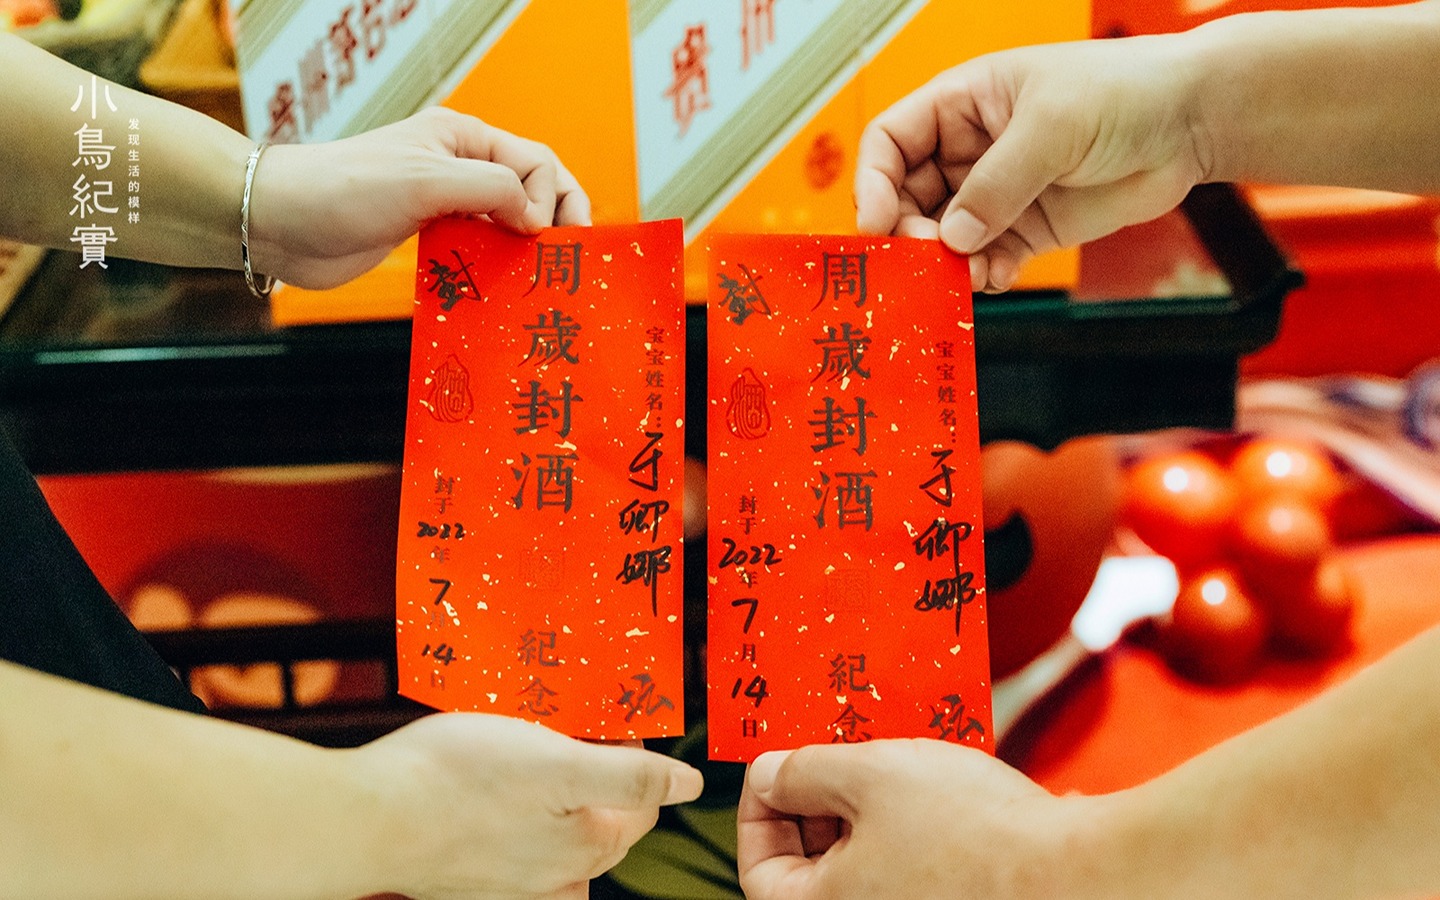 小鳥紀實
发现生活的模样
贵州茅台
贵州
周歲封酒
紀念
宝宝姓名：于卿娜
封于2022年7月14日
封
酒
周歲封酒
紀念
宝宝姓名：于卿娜
封于2022年7月14日
封
酒